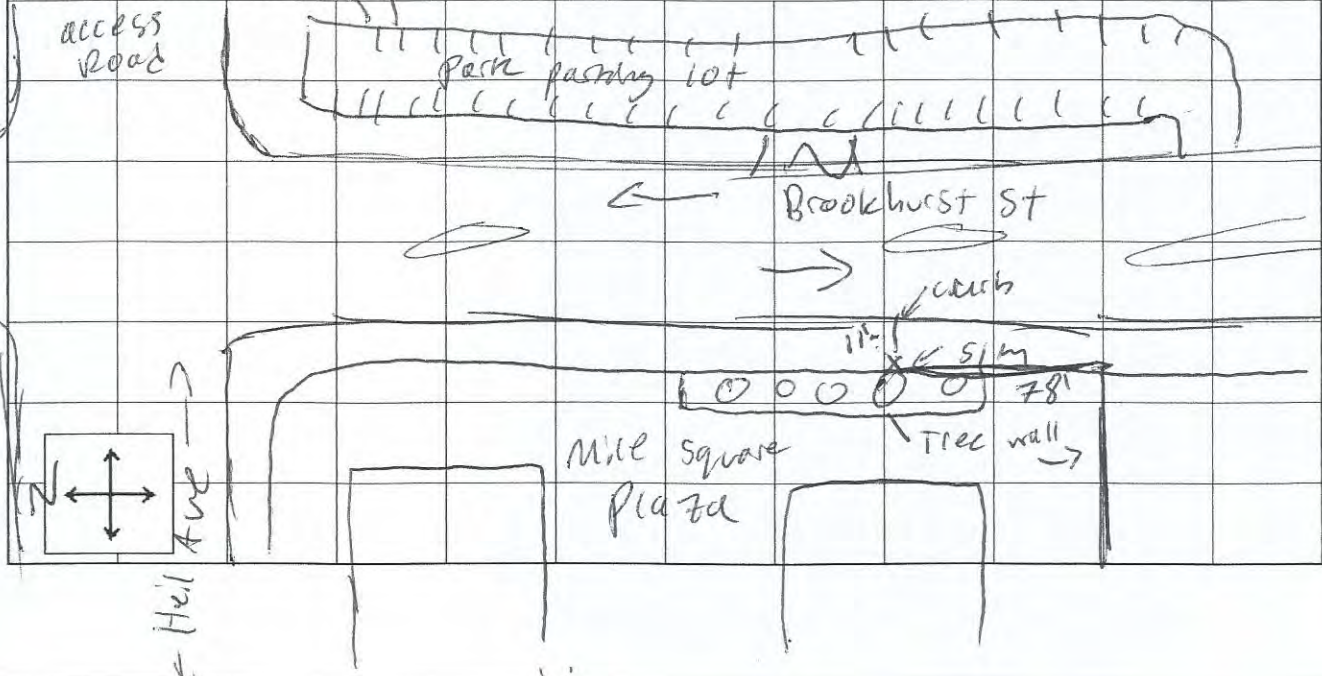 access
Road
Park parking lot
Brookhurst St
curb
11'
78'
Tree wall
Mile Square
Plaza
N
Heil Ave